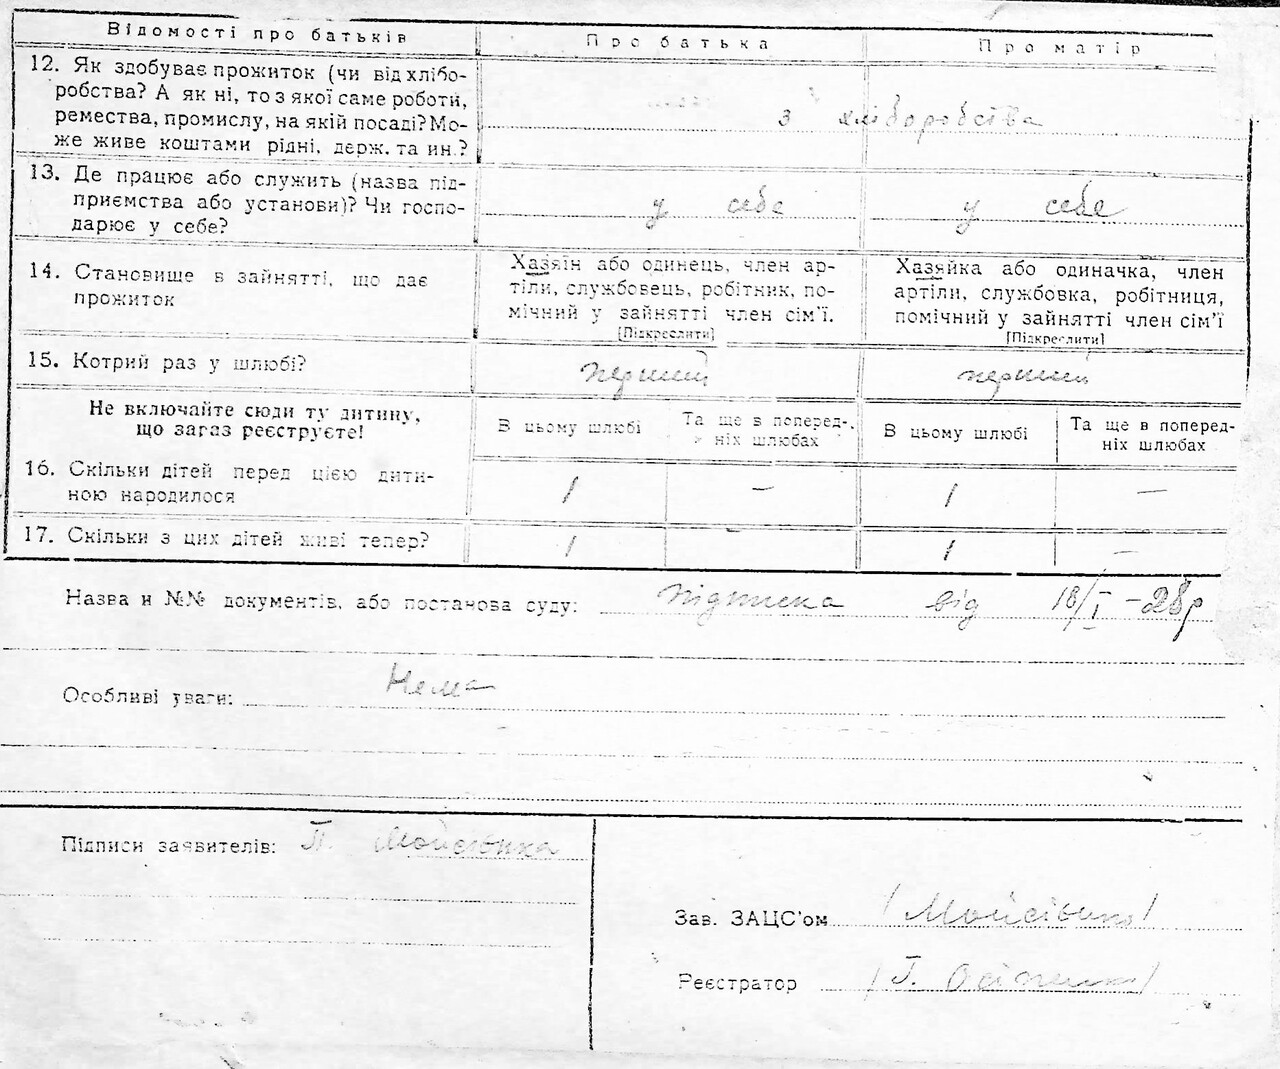 Відомості про батьків
Про батька
Про матір
12. Як здобуває прожиток (чи від хлібо-
робства? А як ні, то з якої саме роботи,
ремества, промислу, на якій посаді? Мо-
же живе коштами рідні, держ. та ин.?
з хліборобства
13. Де працює або служить (назва під-
приємства або установи)? Чи госпо-
дарює у себе?
у себе
у себе
14. Становище в зайнятті, що дає
прожиток
Хазяїн або одинець, член ар-
тіли, службовець, робітник, по-
мічний у зайнятті член сім'ї.
[Підкреслити]
Хазяйка або одиначка, член
артіли, службовка, робітниця,
помічний у зайнятті член сім'ї
[Підкреслити]
15. Котрий раз у шлюбі?
перший
перший
Не включайте сюди ту дитину,
що зараз реєструєте!
В цьому шлюбі
Та ще в поперед-
ніх шлюбах
В цьому шлюбі
Та ще в поперед-
ніх шлюбах
16. Скільки дітей перед цією дити-
ною народилося
1
—
1
—
17. Скільки з цих дітей живі тепер?
1
1
—
Назва и №№ документів, або постанова суду: підписка від 18/I – 28р
Особливі уваги: Нема
Підписи заявителів: П. Мойсієнка
Зав. ЗАЦС'ом /Мойсієнко/
Реєстратор /Г. Осіпенко/